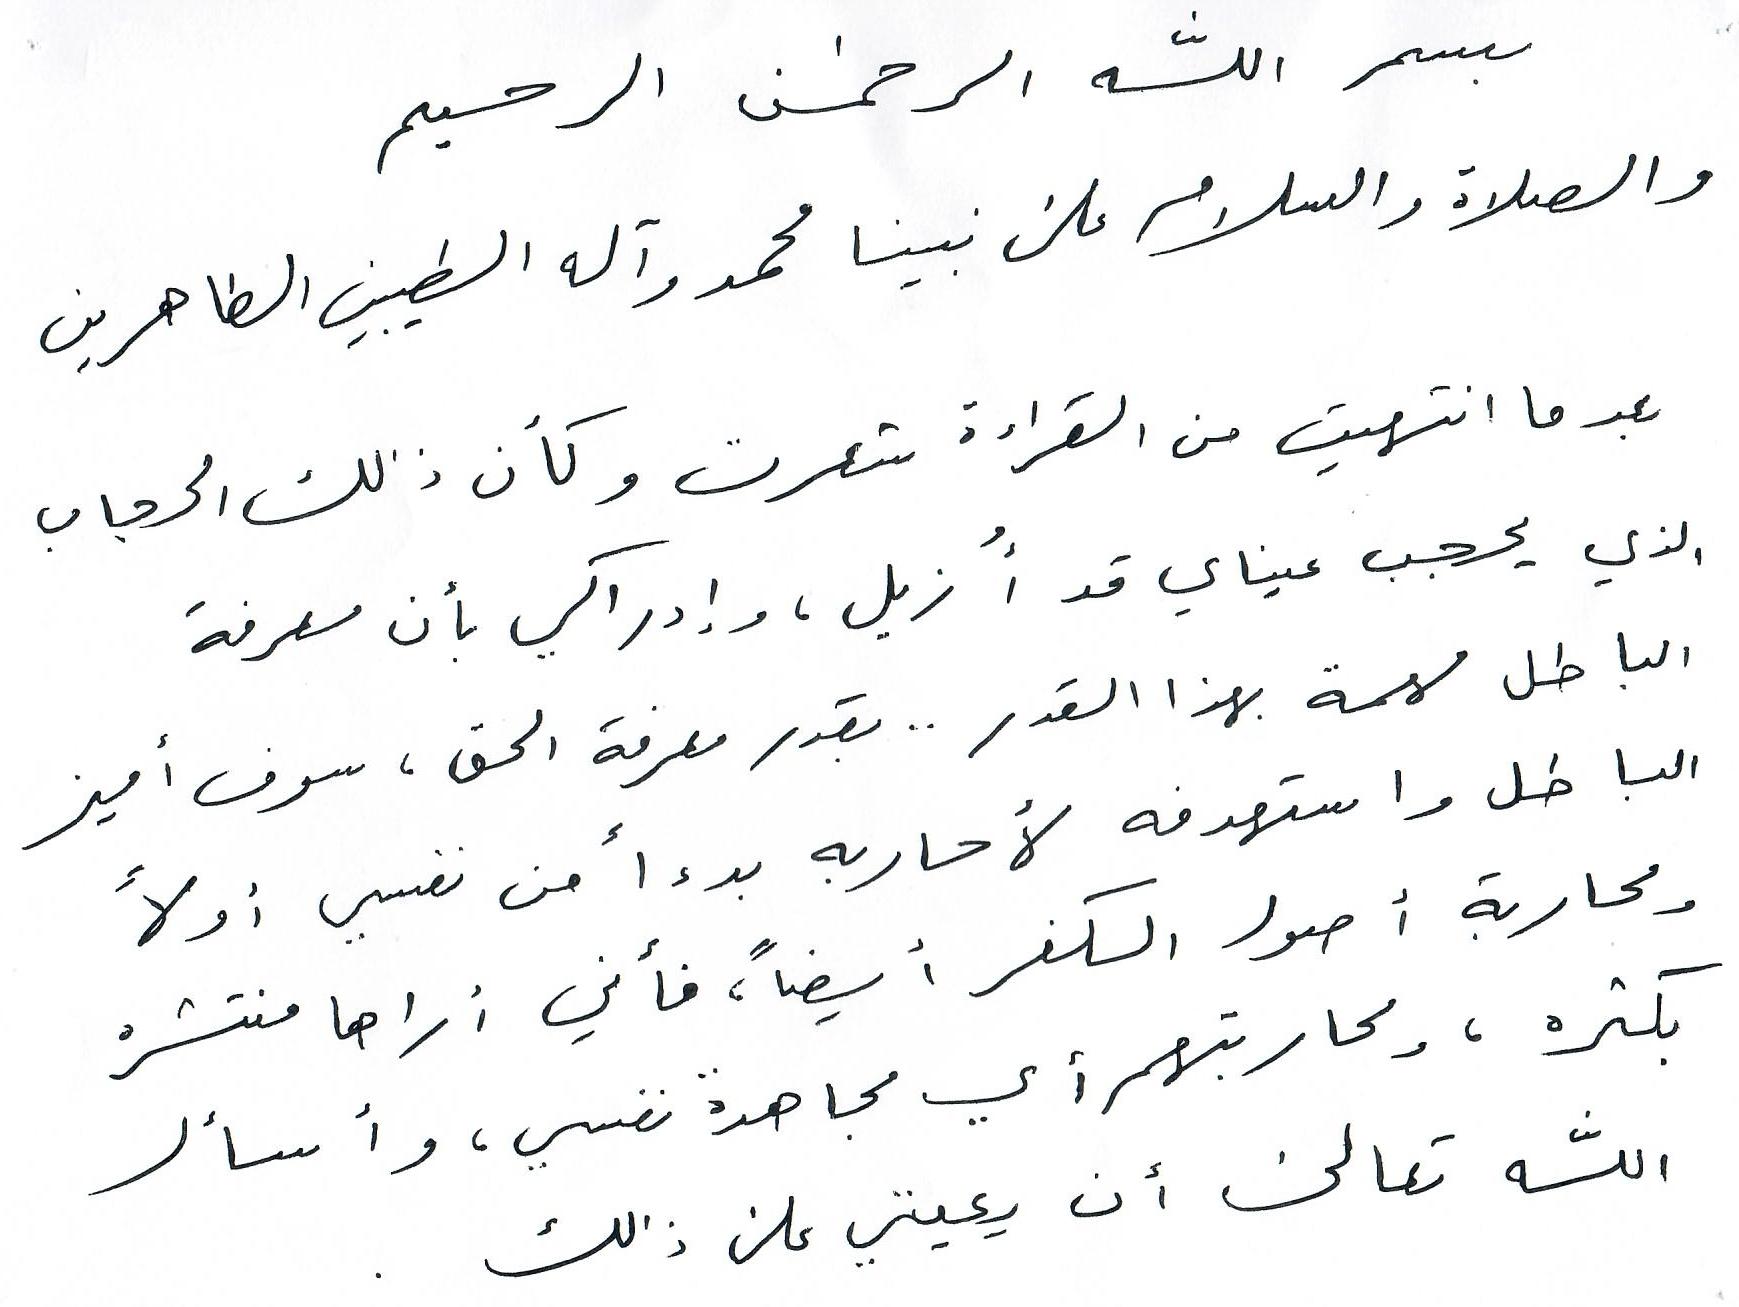 بسم اللّٰه الرحمٰن الرحيم
والصلاة والسلام علىٰ نبينا محمد وآله الطيبين الطاهرين
بعدما انتهيت من القراءة شعرت وكأن ذٰلك الحجاب
الذي يحجب عيناي قد أُزيل، وإدراكي بأن معرفة
الباطل مهمة بهذا القدر .. بقدر معرفة الحق، سوف أميز
الباطل واستهدفه لأحاربه بدءاً من نفسي أولاً
ومحاربة أصول الكفر أيضاً، فأني أراها منتشره
بكثره، ومحاربتهم أي مجاهدة نفسي، وأسأل
اللّٰه تعالىٰ أن يعينني علىٰ ذٰلك .